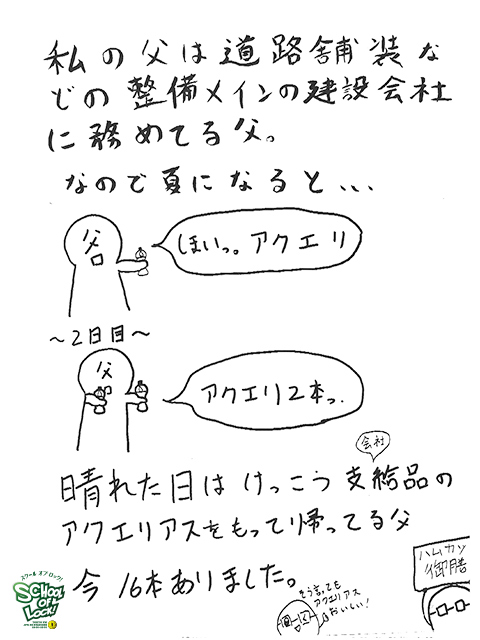 私の父は道路舗装な
どの整備メインの建設会社
に務めてる父。
なので夏になると、、、
父
ほいっ。アクエリ
～2日目～
父
アクエリ2本っ、
会社
晴れた日はけっこう支給品の
アクエリアスをもって帰ってる父
今16本ありました。
そう言っても
アクエリアス
おいしい!
ハムカツ
御膳
スクール オブ ロック!
SCHOOL
OF
LOCK!